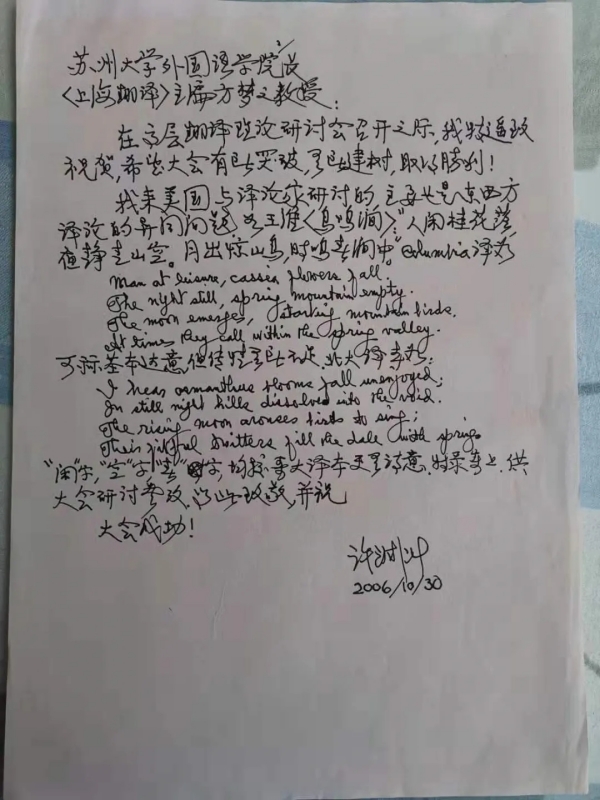 苏州大学外国语学院及
《上海翻译》主席方梦之教授：
在高层翻译理论研讨会召开之际，我特遥致
祝贺，希望大会有所突破，有所建树，取得胜利！
我来美国与译论家研讨的，主要也是东西方
译论的异同问题，如王维《鸟鸣涧》："人闲桂花落，
夜静春山空。月出惊山鸟，时鸣春涧中。"Columbia译为
Man at leisure, cassia flowers fall.
The night still, spring mountain empty.
The moon emerges, startling mountain birds.
At times they call within the spring valley.
可谓基本达意，但传情有所不足，北大译本如：
I hear osmanthus blooms fall unenjoyed;
In still night hills dissolved into the void.
The rising moon arouses birds to sing;
Their fitful twitters fill the dale with spring.
"闲"字，"空"字"春"字，均较哥大译本更有诗意，特录奇上，供
大会研讨参考，以此致敬，并祝
大会成功！
许渊冲
2006/10/30